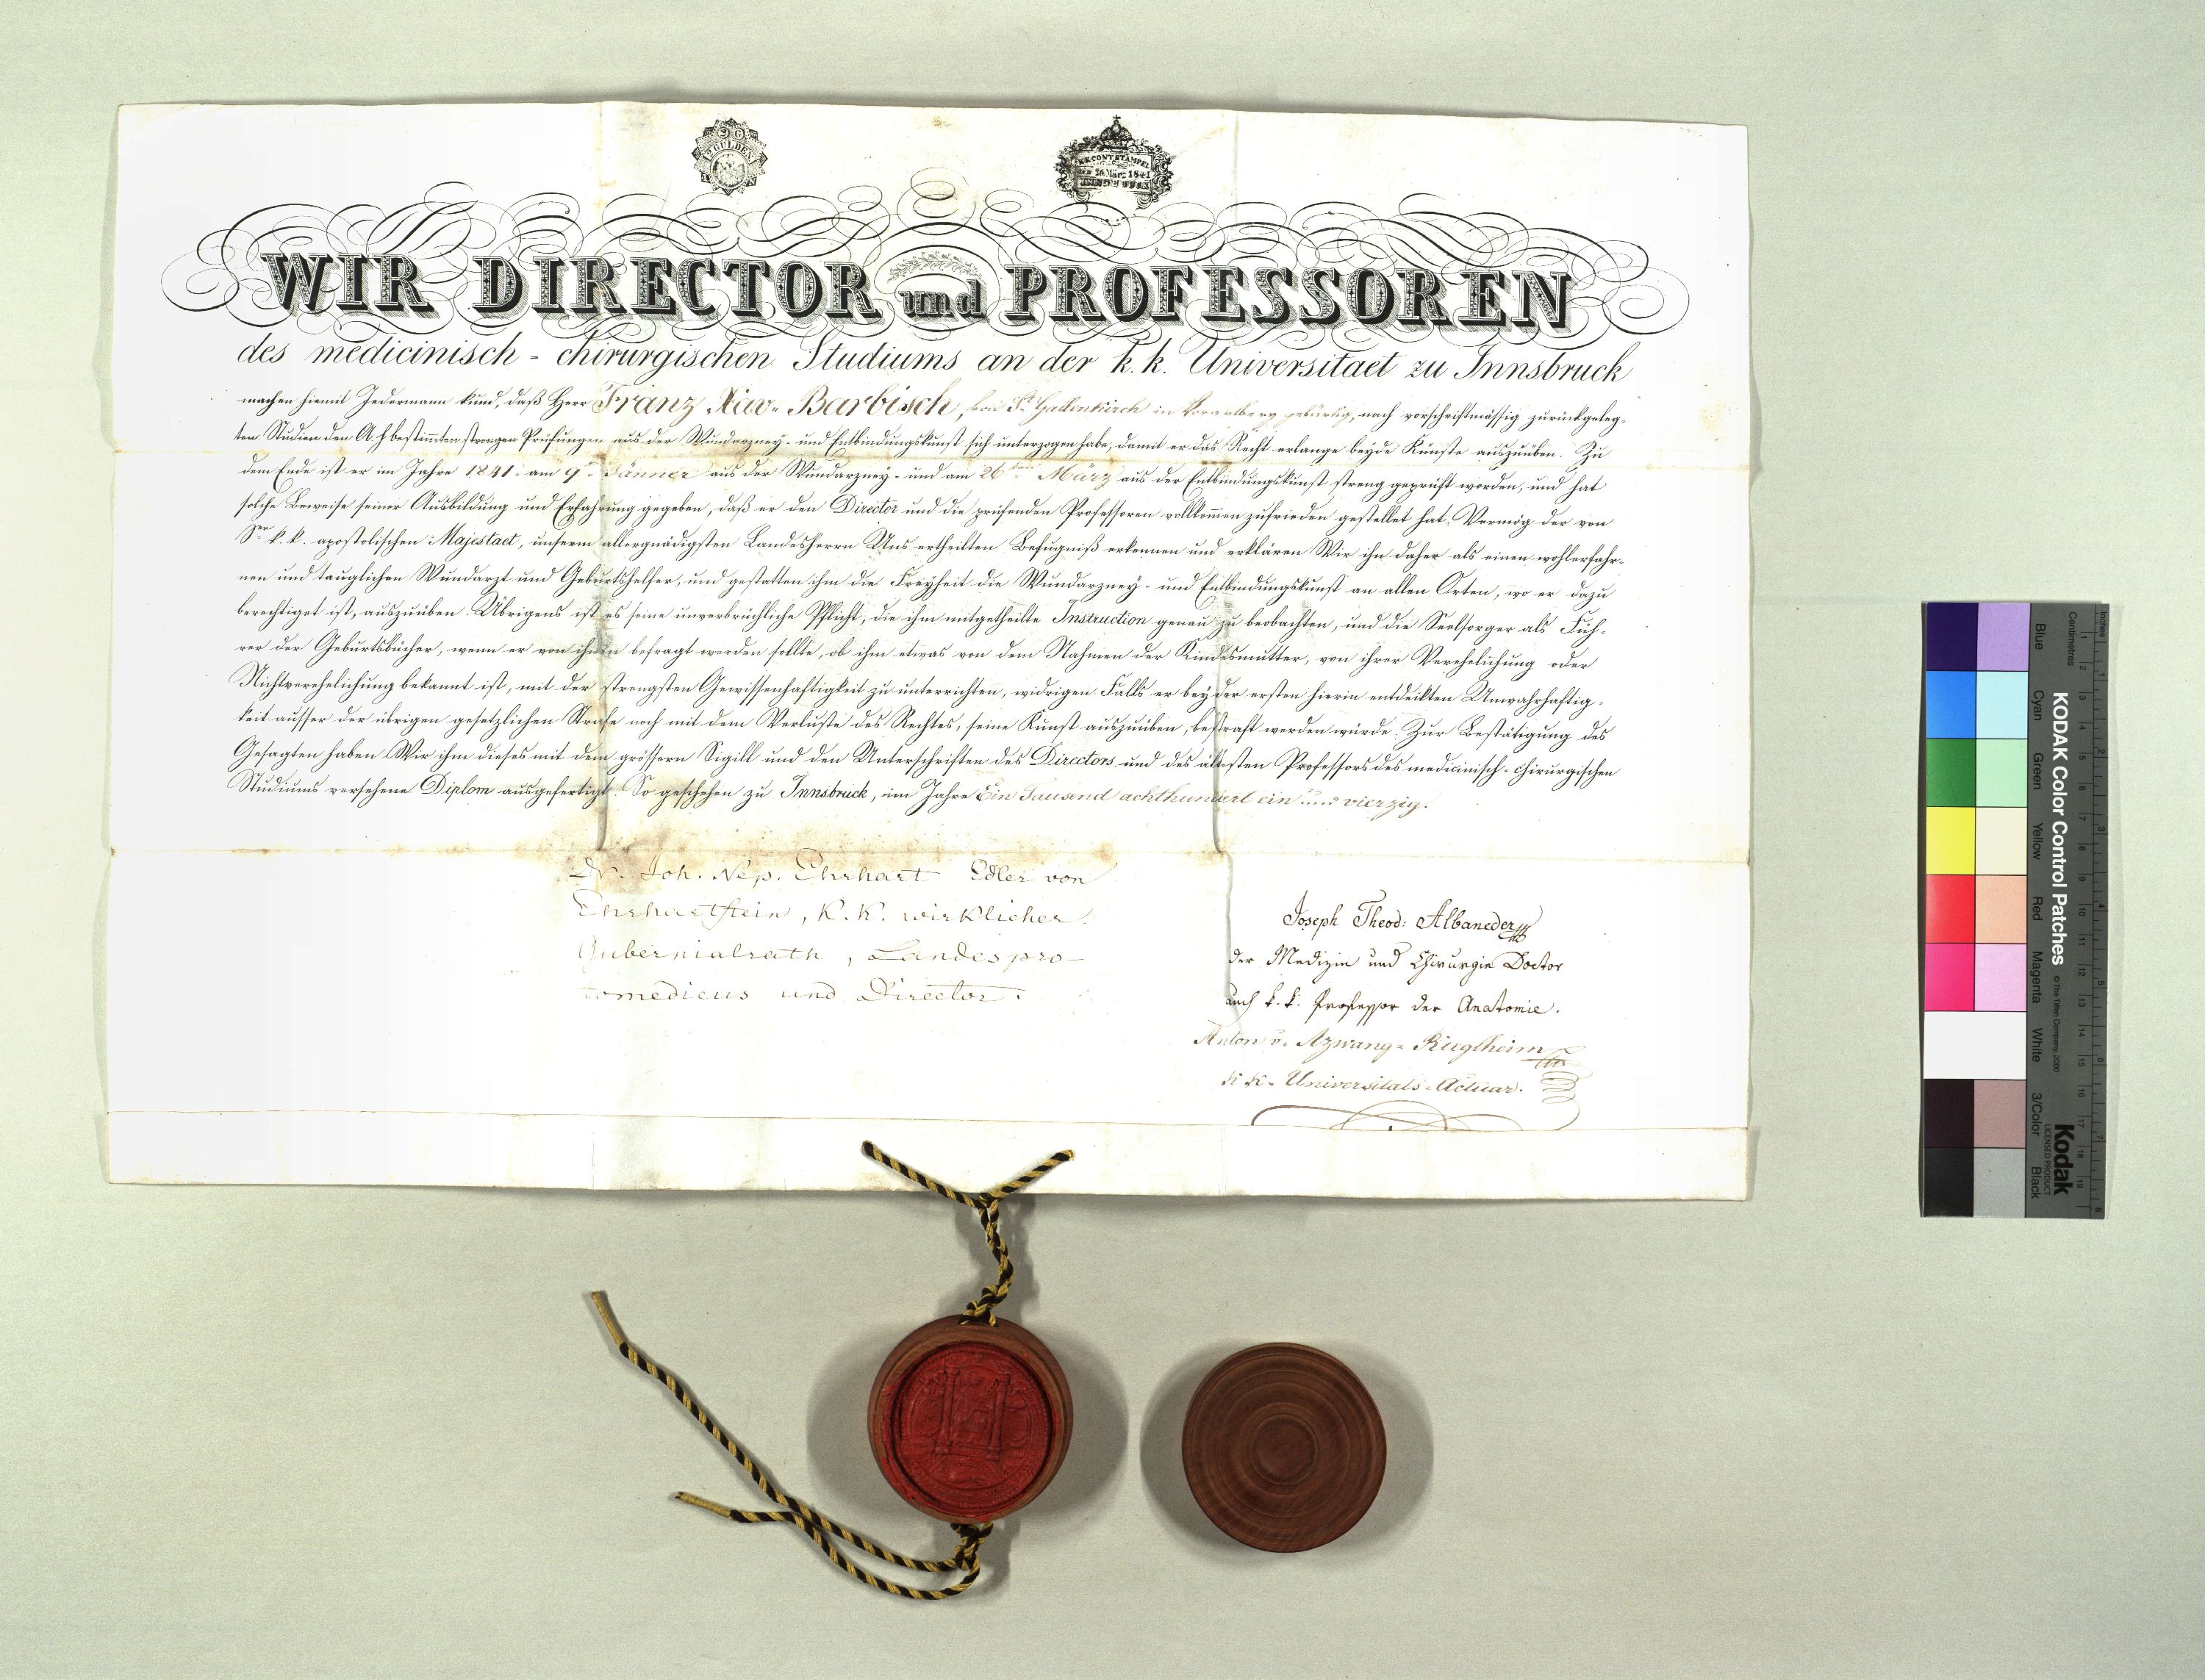 2 GULDEN
K.K. CONT. STAMPEL
den 26 März 1841
INNSBRUCK
WIR DIRECTOR und PROFESSOREN
des medicinisch - chirurgischen Studiums an der k. k. Universitaet zu Innsbruck
machen hiemit Jedermann kund, daß Herr Franz Xav. Barbisch, von St. Gallenkirch in Vorarlberg gebürtig, nach vorschriftmässig zurückgeleg-
ten Studien den A. h. bestimmten strengen Prüfungen aus der Wundarzney- und Entbindungskunst sich unterzogen habe, damit er das Recht erlange beyde Künste auszuüben. Zu
dem Ende ist er im Jahre 1841. am 9ten Jänner aus der Wundarzney- und am 26ten März aus der Entbindungskunst streng geprüft worden, und hat
solche Beweise seiner Ausbildung und Erfahrung gegeben, daß er den Director und die prüfenden Professoren vollkom̅en zufrieden gestellet hat. Vermög der von
Sr. k. k. apostolischen Majestaet, unserm allergnädigsten Landesherrn Uns ertheilten Befugniß erkennen und erklären Wir ihn daher als einen wohlerfahr-
nen und tauglichen Wundarzt und Geburtshelfer, und gestatten ihm die Freyheit die Wundarzney- und Entbindungskunst an allen Orten, wo er dazu
berechtiget ist, auszuüben. Übrigens ist es seine unverbrüchliche Pflicht, die ihm mitgetheilte Instruction genau zu beobachten, und die Seelsorger als Füh-
rer der Geburtsbücher, wenn er von ihnen befragt werden sollte, ob ihm etwas von dem Nahmen der Kindesmutter, von ihrer Verehelichung oder
Nichtverehelichung bekannt ist, mit der strengsten Gewissenhaftigkeit zu unterrichten, widrigen Falls er bey der ersten hierin entdeckten Unwahrhaftig-
keit ausser der übrigen gesetzlichen Strafe noch mit dem Verluste des Rechtes, seine Kunst auszuüben, bestraft werden würde. Zur Bestätigung des
Gesagten haben Wir ihm dieses mit dem grössern Sigill und den Unterschriften des Directors und des ältesten Professors des medicinisch-chirurgischen
Studiums versehene Diplom ausgefertigt. So geschehen zu Innsbruck, im Jahre Ein Tausend achthundert ein und vierzig.
Dr. Joh. Nep. Ehrhart Edler von
Ehrhartstein, K. K. wirklicher
Gubernialrath, Landespro-
tomedicus und Director.
Joseph Theod: Albaneder
der Medizin und Chirurgie Doctor
auch k. k. Professor der Anatomie.
Anton v. Azwang
K. K. Universitäts-Actuar.
Inches
Centimetres
KODAK Color Control Patches
© The Tiffen Company, 2000
Kodak
LICENSED PRODUCT
Blue
Cyan
Green
Yellow
Red
Magenta
White
3/Color
Black